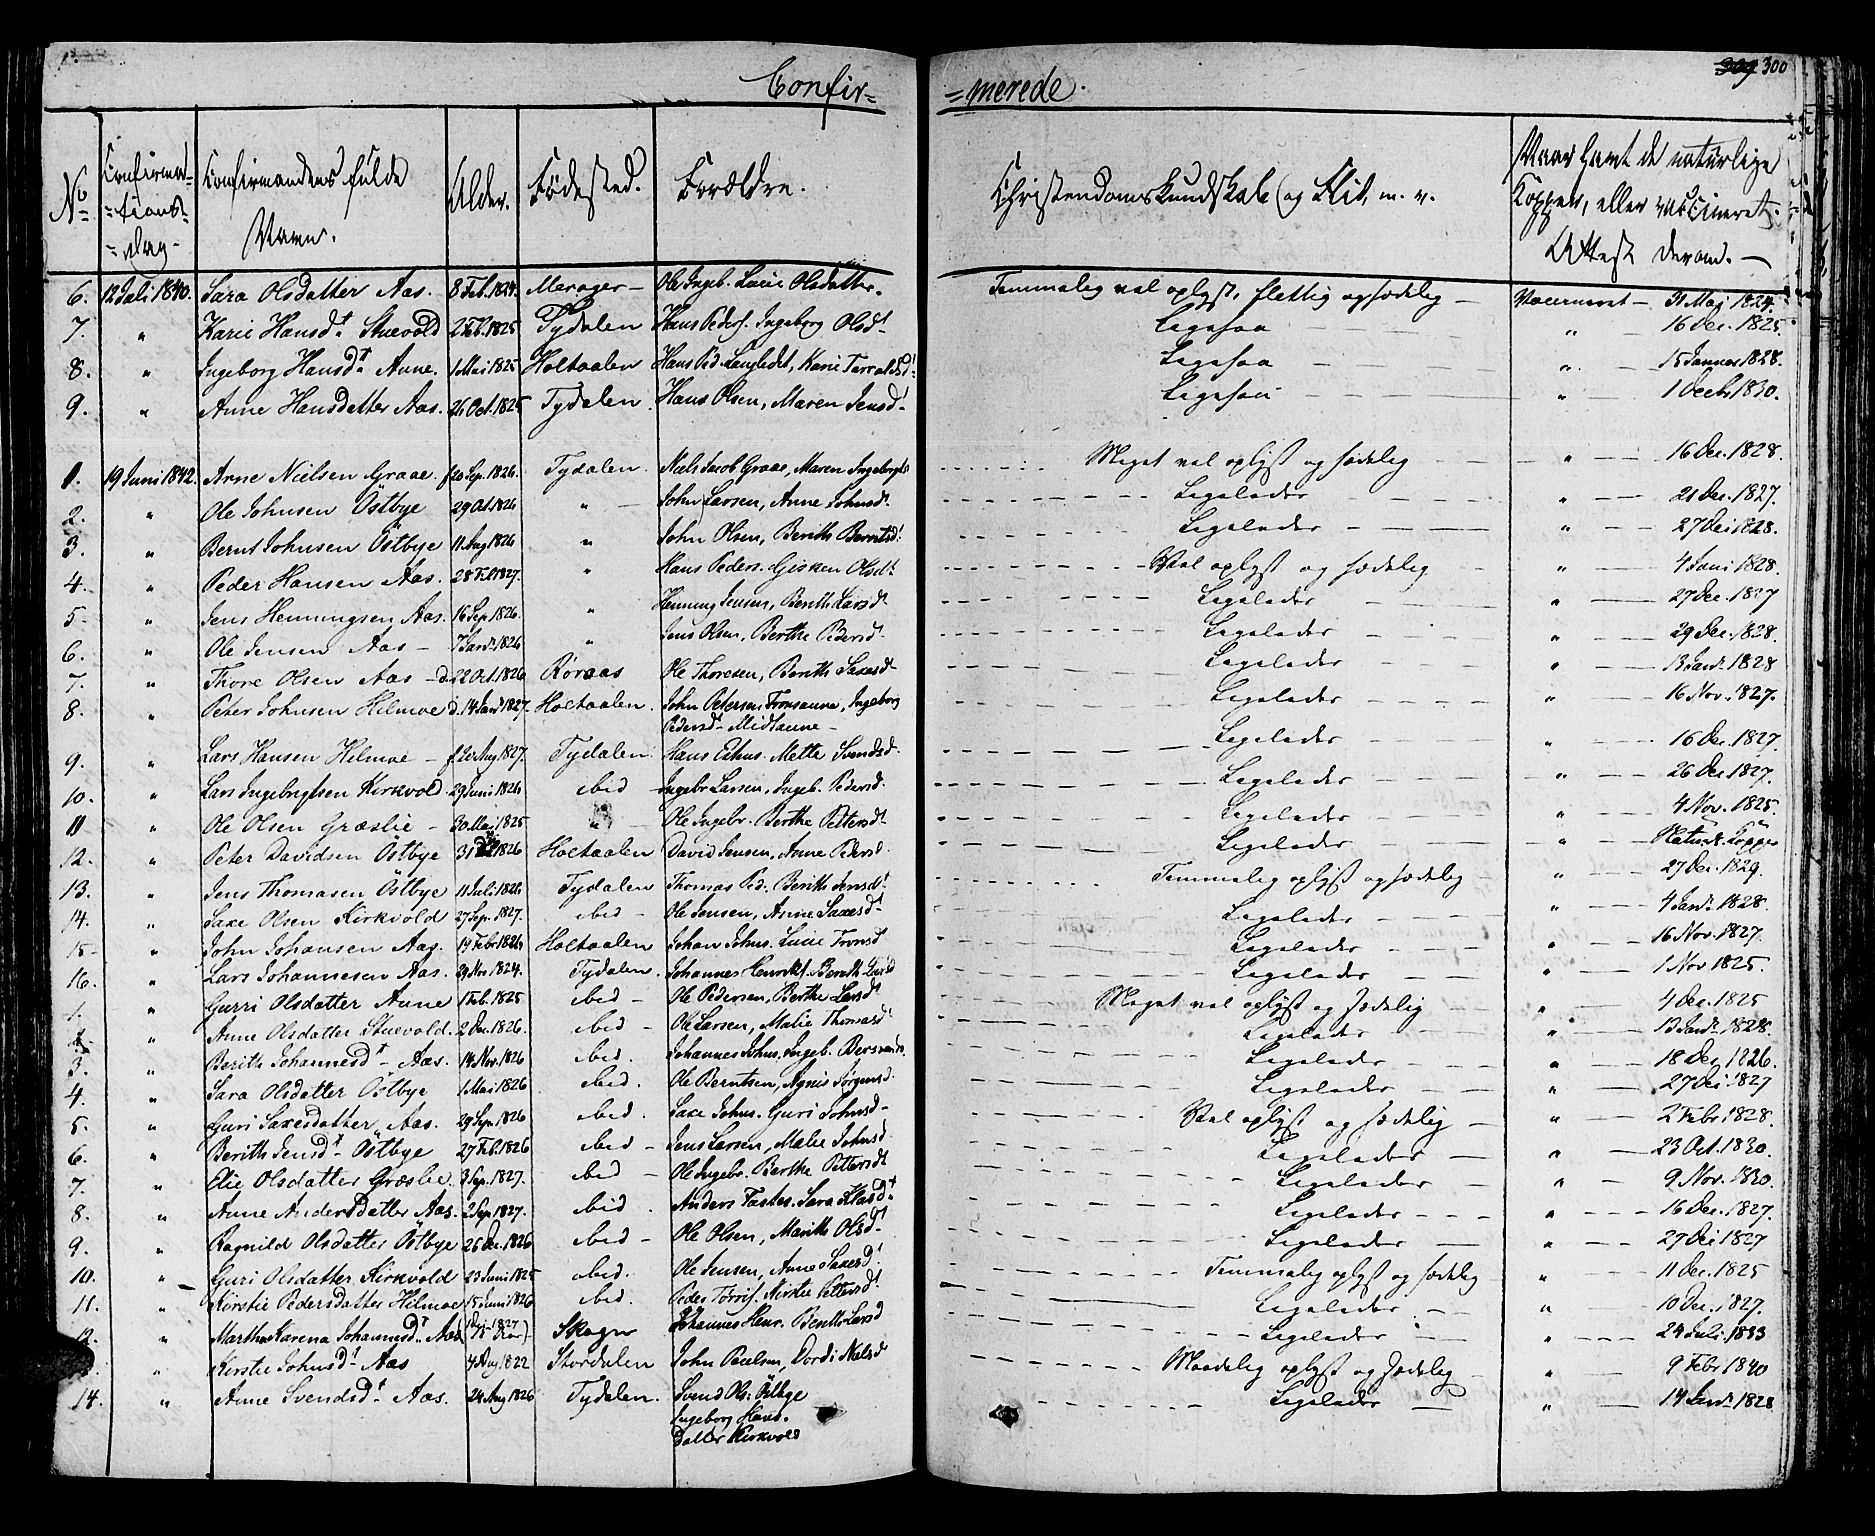 Confir=
=merede.
309 300
No
Confirma-
=tions-
=dag-
Confirmandens fulde
Navn.
Alder.
Födested.
Forældre.
Christendoms Kundskab og Flid, m. v.
Naar havt de naturlige
Kopper, eller vaccineret.
Attest derom. —
6. 12 Juli 1840. Sara Olsdatter Aas. 8 Feb. 1824. Merager — Ole Ingeb. Lucie Olsdatter. Temmelig vel oplyst, flettig og sædelig — Vaccineret — 31 Maj 1824.
7. " Karie Hansdt Stuevold 2 Feb. 1825 Tydalen Hans Peders. Ingeborg Olsdt Ligesaa " — 16 Dec. 1825.
8. " Ingeborg Hansdt Aune. 1 Mai 1825 Holtaalen Hans Ped. Langledet, Karie Tarraldsdt Ligesaa — " — 15 Januar 1828.
9. " Anne Hansdatter Aas. 26 Oct. 1825 Tydalen. Hans Olsen, Maren Jensdt Ligesaa — " — 1 Decbr 1830.
1. 19 Juni 1842. Arne Nielsen Graae. f 20 Sep. 1826. Tydalen. Niels Jacob Graae, Maren Ingebrigts Meget vel oplyst og sædelig — " — 16 Dec. 1828.
2. " Ole Johnsen Östbye 29 Oct. 1826 " — John Larsen, Anne Johnsdt Ligeledes — " — 21 Dec. 1827.
3. " Bernt Johnsen Östbye 11 Aug 1826 " John Olsen, Berith Berntsdt Ligeledes — " — 27 Dec 1828.
4. " Peder Hansen Aas. 28 Feb 1827. " Hans Peders. Gisken Olsdt Vel oplyst og sædelig — " — 4 Juni 1828.
5. " Jens Henningsen Aas. 16 Sep 1826. " Henning Jensen, Berith Larsdt Ligeledes — " — 27 Dec. 1827
6. " Ole Jensen Aas — 7 Janr. 1826 " Jens Olsen, Berthe Pedersdt Ligeledes — " — 29 Dec. 1828.
7. " Thore Olsen Aas — d. 22 Oct. 1826 Röraas Ole Thoresen, Berith Saxesdt Ligeledes — " — 13 Janr. 1828
8. " Peter Johnsen Hilmoe d. 14 Janr 1827. Holtaalen. John Petersen Tronsaune, Ingeborg Ligeledes — " — 16 Nov. 1827.
Pedersdt Midtaune —
9. " Lars Hansen Hilmoe — f 20 Aug 1827. Tydalen. Hans Mette Svendsd. Ligeledes — " — 16 Dec. 1827.
10. " Lars Ingebrigtsen Kirkvold 29 Juni 1826 ibid — Ingebr. Larsen, Ingeb. Pedersd. Ligeledes — " — 26 Dec 1827.
11 " Ole Olsen Græslie — 30 Mai 1825 " — Ole Ingebr. Berthe Pettersdt Ligeledes — " — 4 Nov. 1825.
12. " Peter Davidsen Östbye 31 1826 Holtaalen David Jensen, Anne Pedersd. Ligeledes — " — Naturl. Kopper
13. " Jens Thomasen Östbye 11 Juli 1826 Tydalen Thomas Ped. Berith Jensdt Temmelig oplyst og sædelig — " — 27 Dec. 1829.
14. " Saxe Olsen Kirkvold 27 Sep. 1827. ibid — Ole Jensen, Anne Saxesdt Ligeledes — " — 4 Janr. 1828
15 — " John Johansen Aas. 19 Febr 1826 Holtaalen Johan Johns. Lucie Tronsd Ligeledes — " — 16 Nov. 1827.
16. " Lars Johannesen Aas. 29 Nov 1824. Tydalen. Johannes Henriks. Berith Larsd Ligeledes — " — 1 Nov 1825.
1. " Gurri Olsdatter Aune 1 Feb. 1825 ibid — Ole Pedersen, Berthe Larsdt Meget vel oplyst og sædelig — " — 4 Dec. 1825
2. " Anne Olsdatter Stuevold. 2 Dec. 1826. ibid — Ole Larsen, Malie Thomasdt Ligeledes — " — 13 Janr. 1828.
3. " Berith Johannesdt — Aas. 14 Nov. 1826 ibid. Johannes Johns. Ingeb. Ligeledes — " — 18 Dec 1826.
4. " Sara Olsdatter Östbye 1 Mai 1826 ibid. Ole Berntsen, Agnis Jörgensd. Ligeledes — " — 27 Dec 1827
5. " Guri Saxesdatter Aas. 29 Sep. 1826 ibid. Saxe Johns. Guri Johnsd — Vel oplyst og sædelig — " — 2 Febr 1828.
6. " Berith Jensdt Östbye 27 Feb. 1826 ibid — Jens Larsen, Malie Johnsd Ligeledes — " — 23 Oct. 1830.
7. " Elie Olsdatter Græslie. 3 Sep. 1827. ibid — Ole Ingebr. Berthe Pettersdt Ligeledes — " — 9 Nov. 1830.
8. " Anne Andersdatter Aas. 2 Sep 1827. ibid. Anders Sara Olsdt Ligeledes — " — 16 Dec. 1827.
9. " Ragnild Olsdatter Östbye 26 Dec. 1826 ibid — Ole Olsen, Marith Olsdt Ligeledes — " — 27 Dec 1827
10. " Guri Olsdatter Kirkvold 23 Juni 1825 ibid. Ole Jensen, Anne Saxesdt Temmelig oplyst og sædelig " — 11 Dec. 1825
11. " Kirstie Pedersdatter Hilmoe 15 Juni 1826 ibid. Peder Kirstie Pettersdt Ligeledes — " — 10 Dec. 1827.
12. " Martha Karena Johannesdt Aas 1827 Skogn Johannes Henr. Berith Larsd Ligeledes — " — 24 Juli 1833
" Kirstie Johnsdt Aas 4 Aug 1822 Stordalen John Paulsen, Dordi Nielsd Maadelig oplyst og sædelig — " — 9 Febr 1840
14. " Anne Svendsdt Aas. 24 Aug 1826 Tydalen. Svend Ols. Östbye Ligeledes — " — 14 Janr. 1828
Ingeborg Hans-
datter Kirkvold